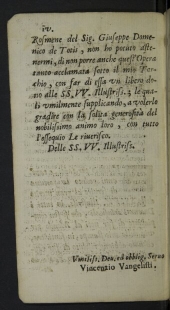 iv.
Rosmene del Sig. Giuseppe Dome-
nico de Totis, non ho potuto aste-
nermi, di non porre anche quest'Opera
tanto acclamata sotto il mio Tor-
chio, con far di essa un libero do-
no alle SS. VV. Illustriss. à le qua-
li vmilmente supplicando, a volerla
gradire con la solita generosità del
nobilissimo animo loro, con tutto
l'ossequio Le riuerisco.
Delle SS. VV. Illustriss.
Vmiliss. Deu. ed obblig. Seruo
Vincenzio Vangelisti.